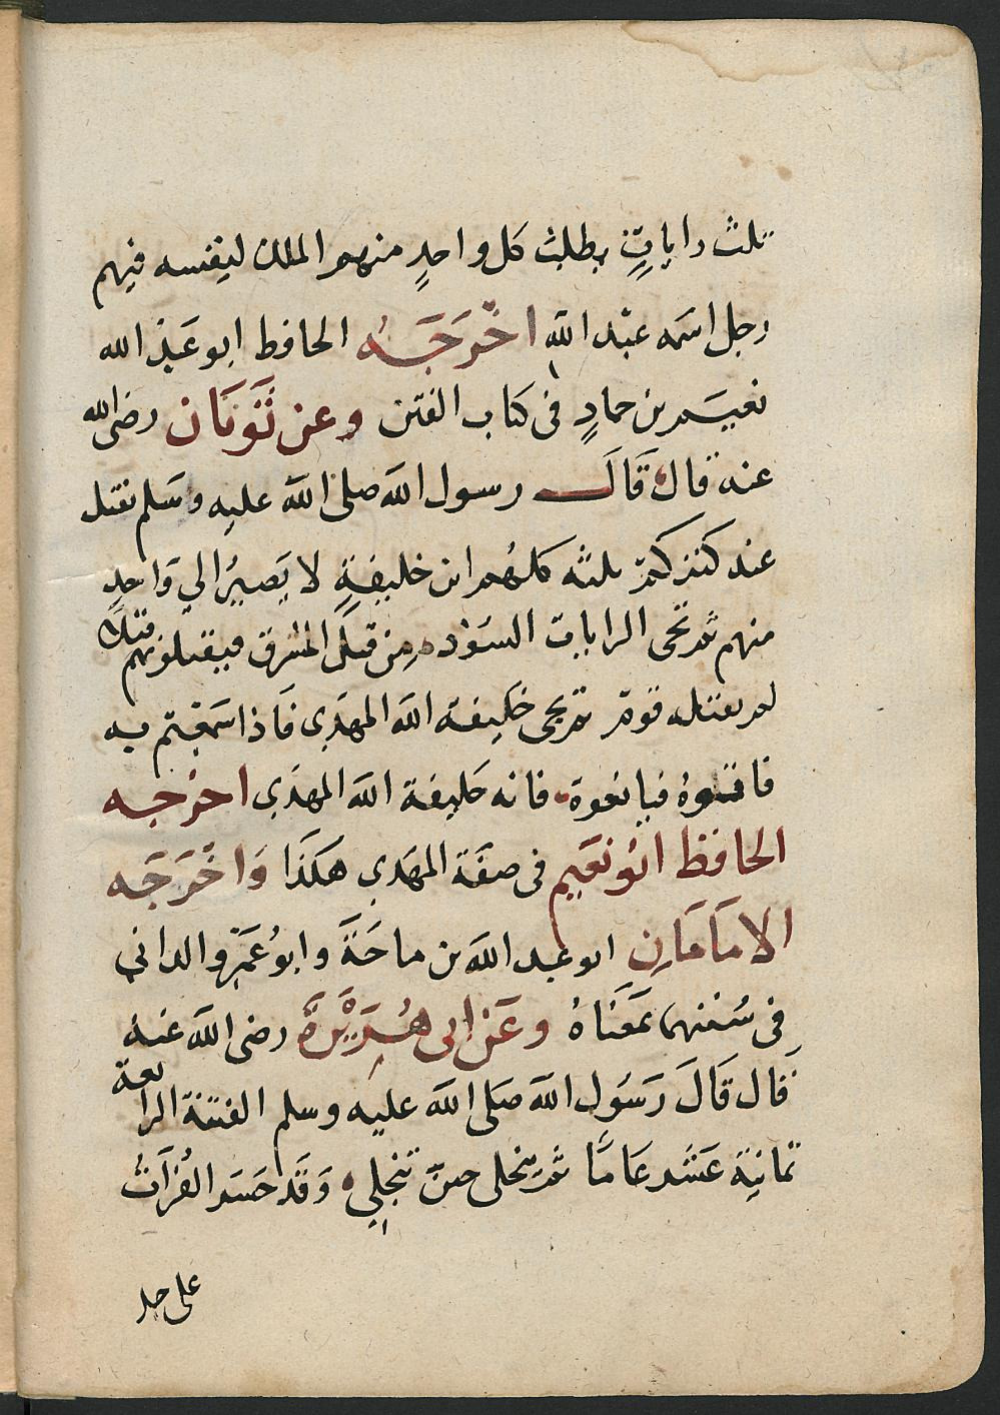 ثلث رايات يطلب كل واحدٍ منهم الملك لنفسه فيهم
رجل اسمه عبد الله اخرجه الحافظ ابو عبد الله
نعيم بن حمادٍ في كتاب الفتن وعن ثوبان رضي الله
عنه قال قال رسول الله صلى الله عليه وسلم يقتل
عند كنزكم ثلثه كلهم ابن خليفةٍ لا يصير الي واحدٍ
منهم ثم تجى الرايات السود من قبل المشرق فيقتلونهم قتلا
لم يقتله قوم ثم يجى خليفة الله المهدي فاذا سمعتم به
فاتوه فبايعوه فانه خليفة الله المهدي اخرجه
الحافظ ابو نعيم في صفة المهدي هكذا واخرجه
الامامان ابو عبد الله بن ماجة وابو عمرو الداني
في سننهما بمعناه وعن ابى هريرة رضى الله عنه
قال قال رسول الله صلى الله عليه وسلم الفتنة الرابعة
ثمانية عشر عاما ثم ينجلى حين تنجلي وقد حسر الفرات
على جبل